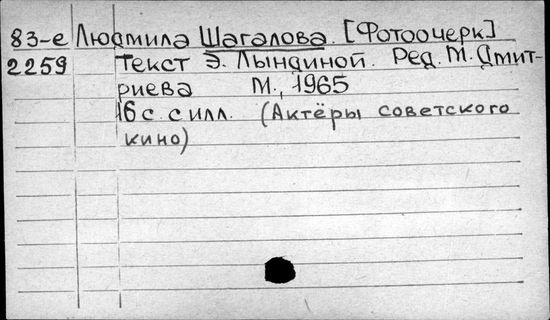 83-е Людмила Шагалова. [Фотоочерк]
2259 Текст Э. Лындиной. Ред. М. Дмит-
риева М., 1965
16 с. с илл. (Актёры советского
кино)